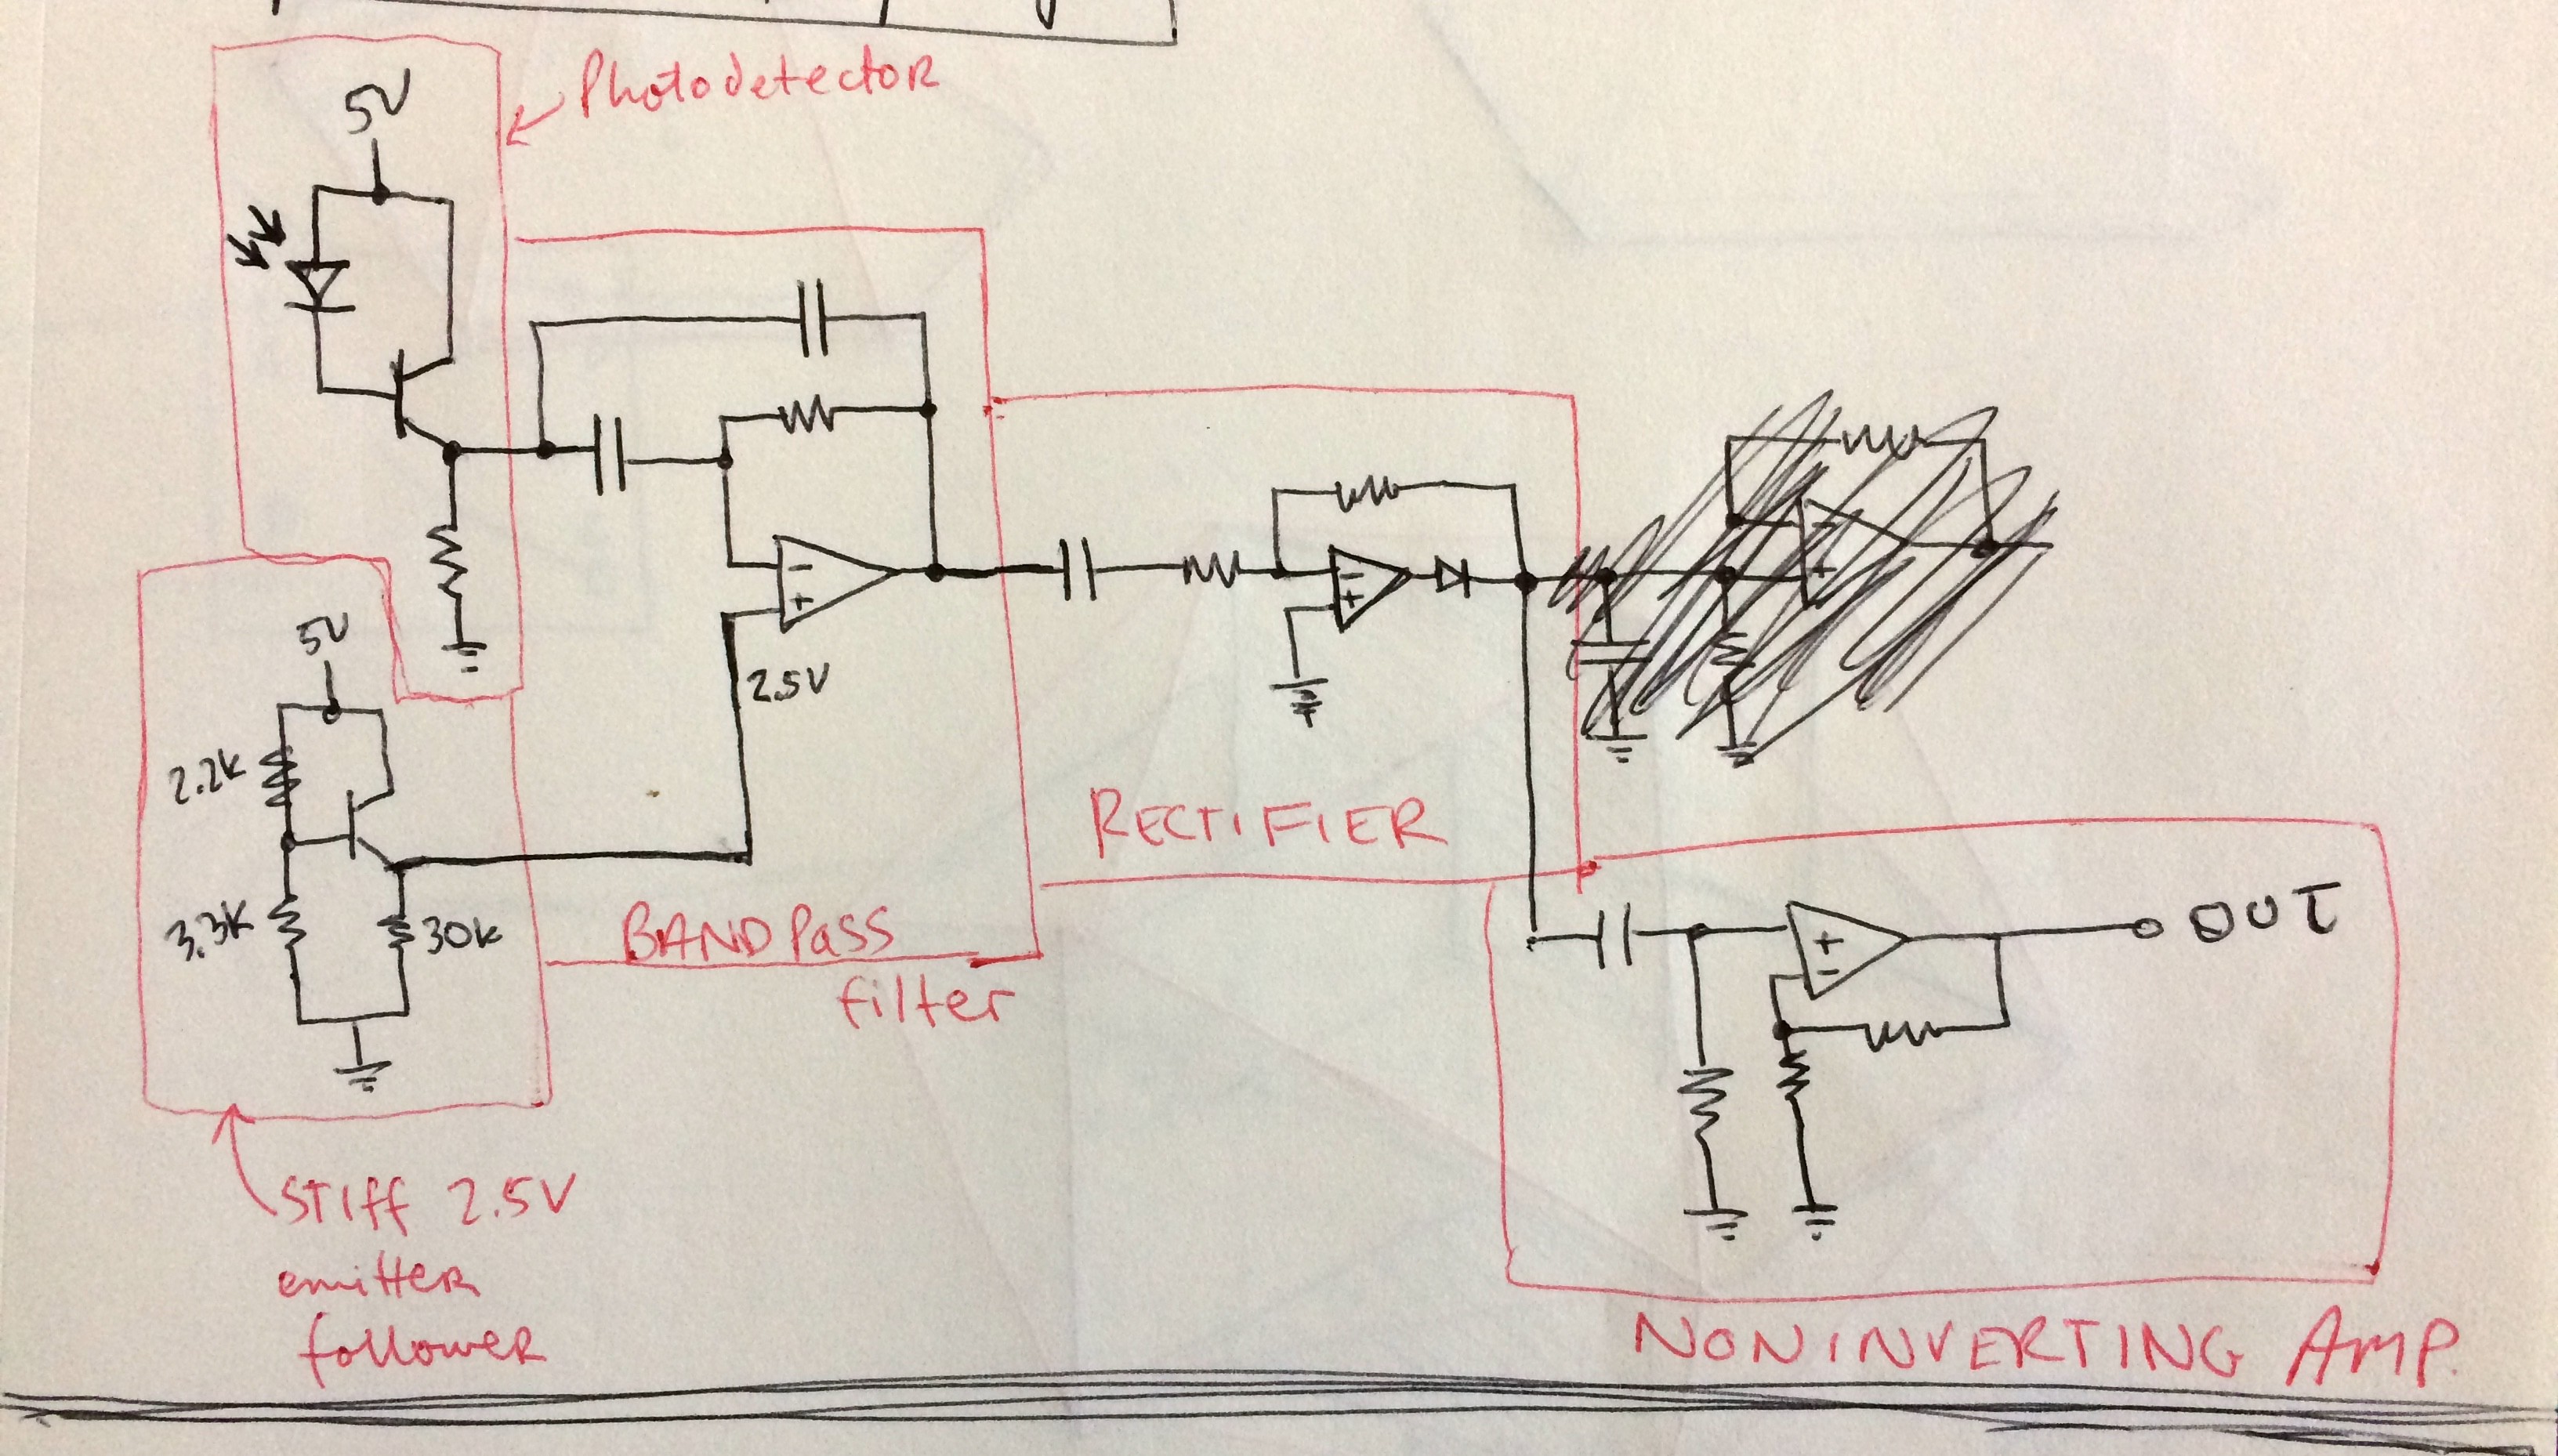 Photodetector
5V
5V
2.5V
2.2K
3.3K
30K
RECTIFIER
BANDPASS
filter
OUT
STIFF 2.5V
emitter
follower
NONINVERTING AMP.